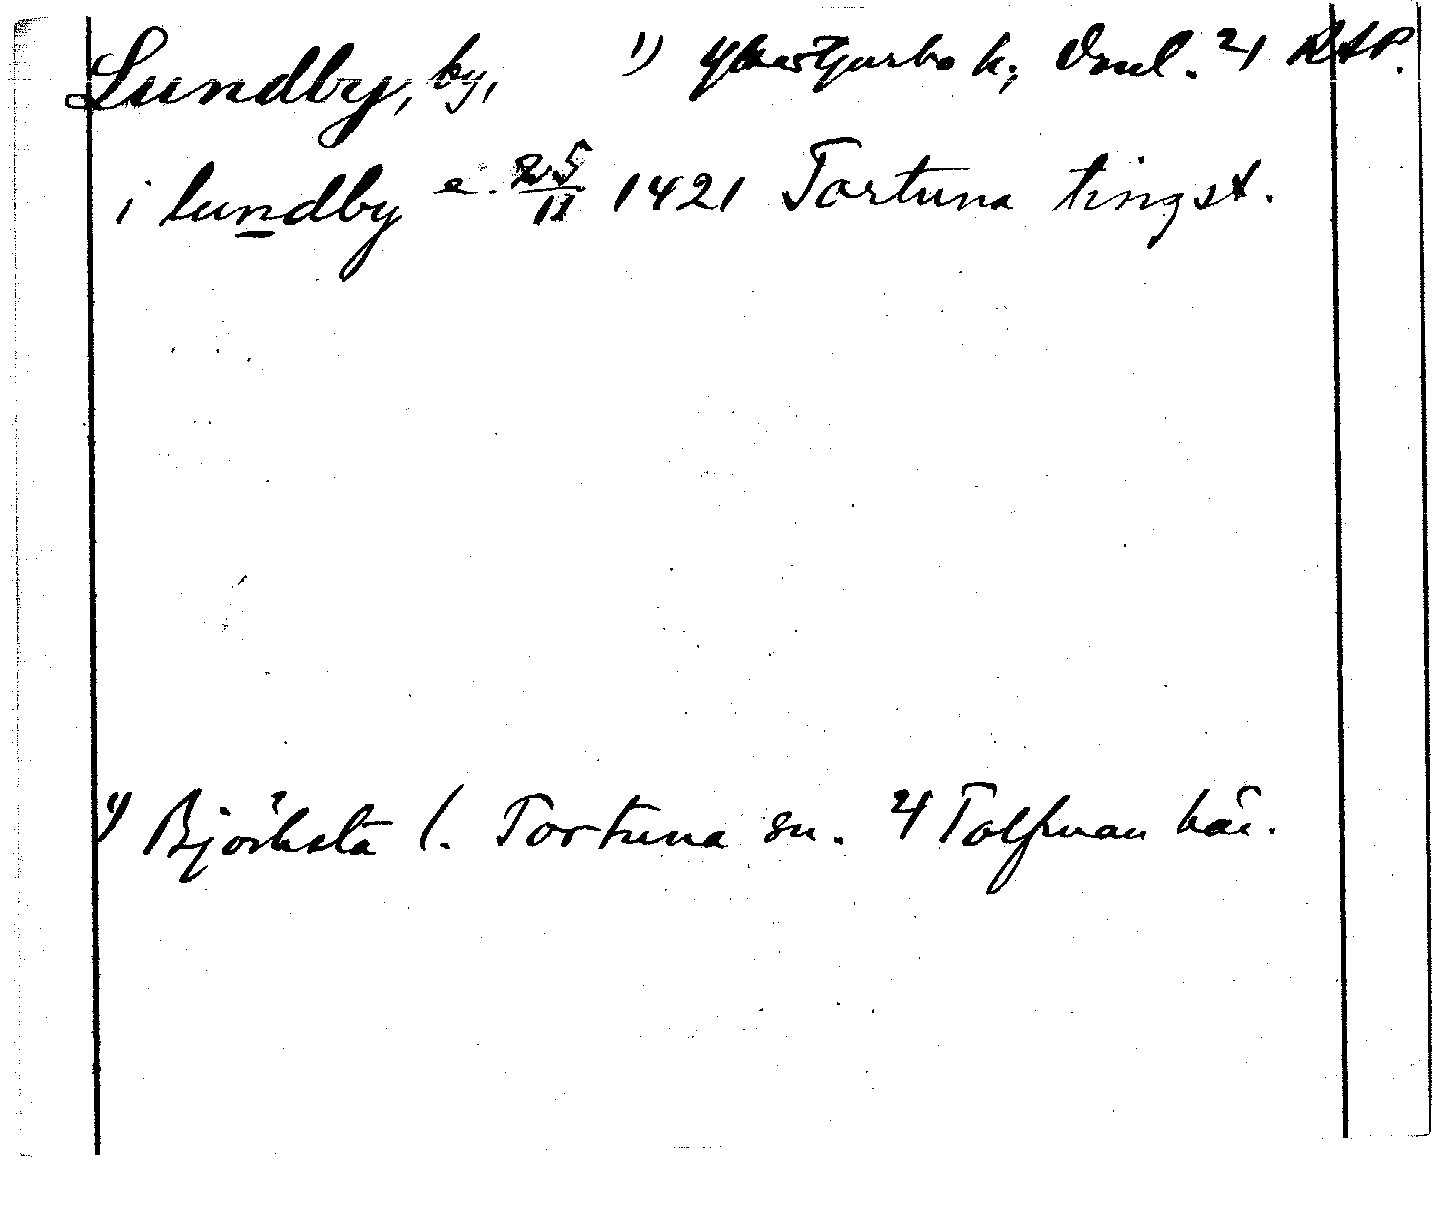 Lundby, by, 1) Yttertjurbo h; Vml. 2) RAP.
i lundby e. 25/11 1421 Tortuna tingst.
1) Björksta l. Tortuna sn. 2) Tolfman här.